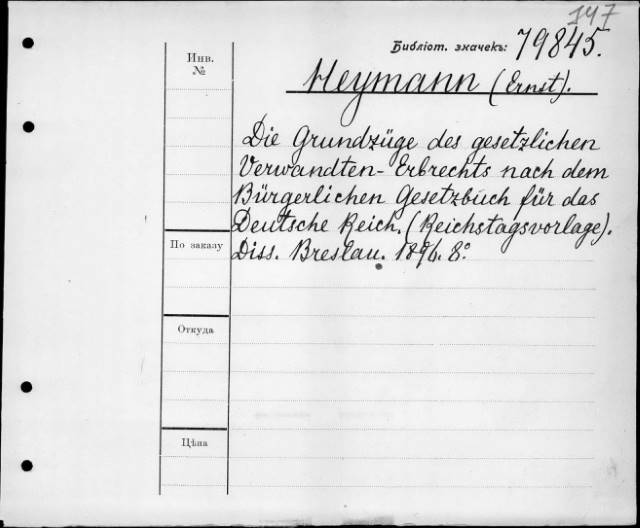 147
Библіот. значекъ: 79845.
Инв.
№
Heymann (Ernst).
Die Grundzüge des gesetzlichen
Verwandten-Erbrechts nach dem
Bürgerlichen Gesetzbuch für das
Deutsche Reich. (Reichstagsvorlage).
По заказу
Diss. Breslau. 1896. 8º
Откуда
Цѣна